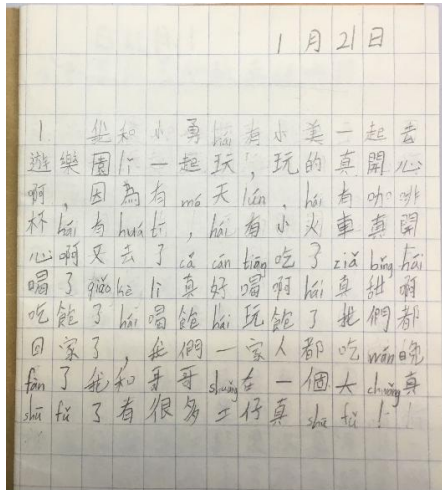 1月21日
1. 我和小勇hái有小美一起去
遊樂園lǐ一起玩,玩的真開心
啊,因為有mó天lún,hái有咖啡
杯hái有huá tī,hái有小火車真開
心啊又去了cā cān tīng吃了 bǐng hái
喝了qiǎo kè lì真好喝啊hái真甜啊
吃飽了hái喝飽hái玩飽了我們都
回家了,我們一家人都吃wǎn晚
fàn了我和哥哥shuāng在一個大chuáng真
shū fú了有很多公仔真shū fú!